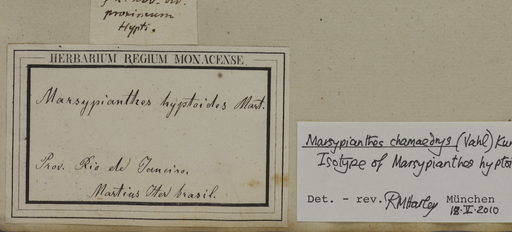 proximum
Hypti.
HERBARIUM REGIUM MONACENSE.
Marsypianthes hyptoides Mart.
Prov. Rio de Janeiro,
Martius Iter brasil.
Marsypianthes chamaedrys (Vahl) Kun
Isotype of Marsypianthes hypto
Det. - rev. RMHarley München
18.V.2010